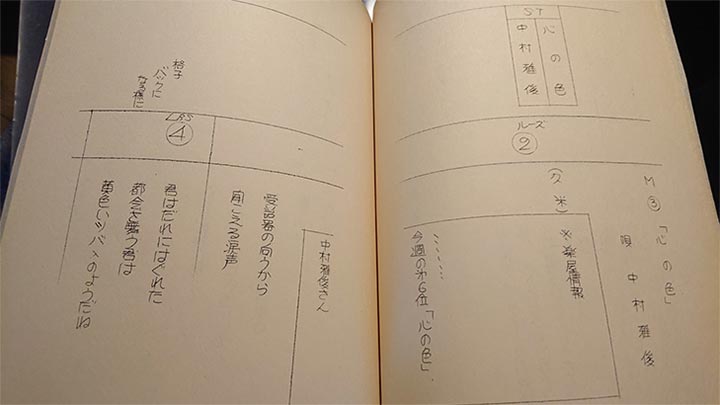 ST
心の色
中村雅俊
ルーズ
②
M③「心の色」
唄 中村雅俊
(久米)
※楽屋情報
………
今週の第6位「心の色」.
格子
バックに
なる様に
④
中村雅俊さん
受話器の向うから
聞こえる涙声
君はだれにはぐれた
都会を舞う君は
黄色いツバメのようだね